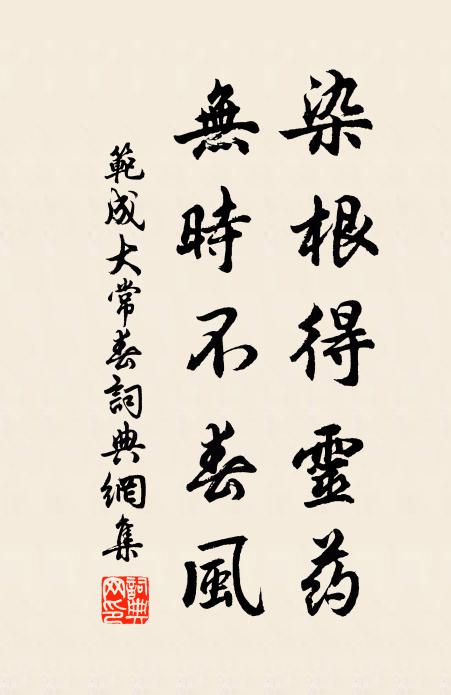 染根得靈药
無時不春風
範成大常春詞典網集
詞典網印